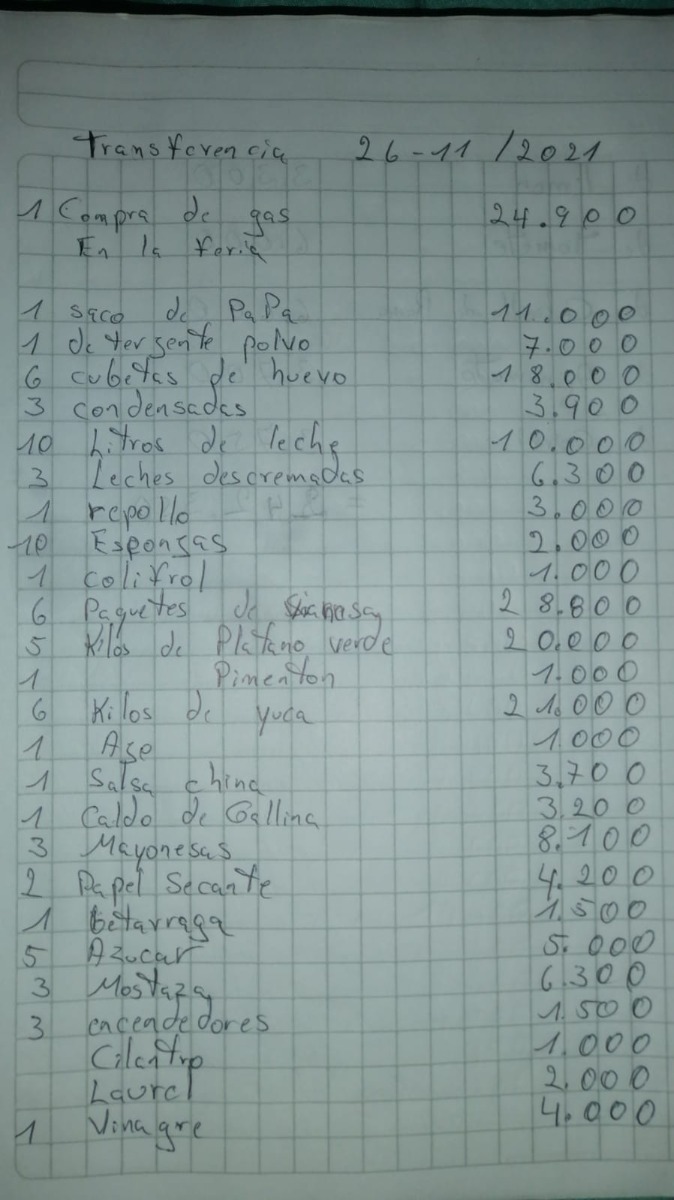 Transferencia 26-11/2021
1 Compra de gas 24.900
En la feria
1 saco de PaPa 11.000
1 detergente polvo 7.000
6 cubetas de huevo 18.000
3 condensadas 3.900
10 Litros de leche 10.000
3 Leches descremadas 6.300
1 repollo 3.000
10 Esponsas 2.000
1 colifrol 1.000
6 Paquetes de 28.800
5 Kilos de Platano verde 20.000
1 Pimenton 1.000
6 Kilos de yuca 21.000
1 Ase 1.000
1 Salsa china 3.700
1 Caldo de Gallina 3.200
3 Mayonesas 8.100
2 Papel Secante 4.200
1 betarraga 1.500
5 Azucar 5.000
3 Mostaza 6.300
3 encendedores 1.500
Cilantro 1.000
Laurel 2.000
1 Vinagre 4.000